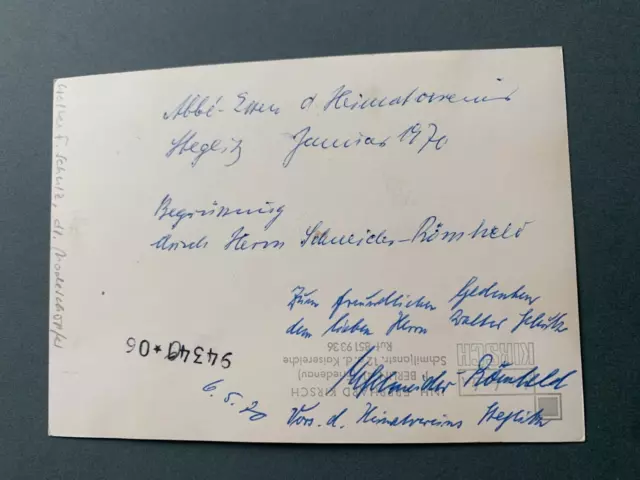 Abbé-Essen d. Heimatvereins
Steglitz Januar 1970
Begrüssung
durch Herrn Schneider-Römheld
Zum freundlichen Gedenken
dem lieben Herrn Walter Schultz
Schneider-Römheld
Vors. d. Heimatvereins Steglitz
6.5.70
94340*06
KIRSCH
INH. EBERHARD KIRSCH
1 BERLIN (Friedenau)
Schmiljanstr. 12, E. d. Kaisereiche
Ruf: 851 93 36
Schulz, dr.